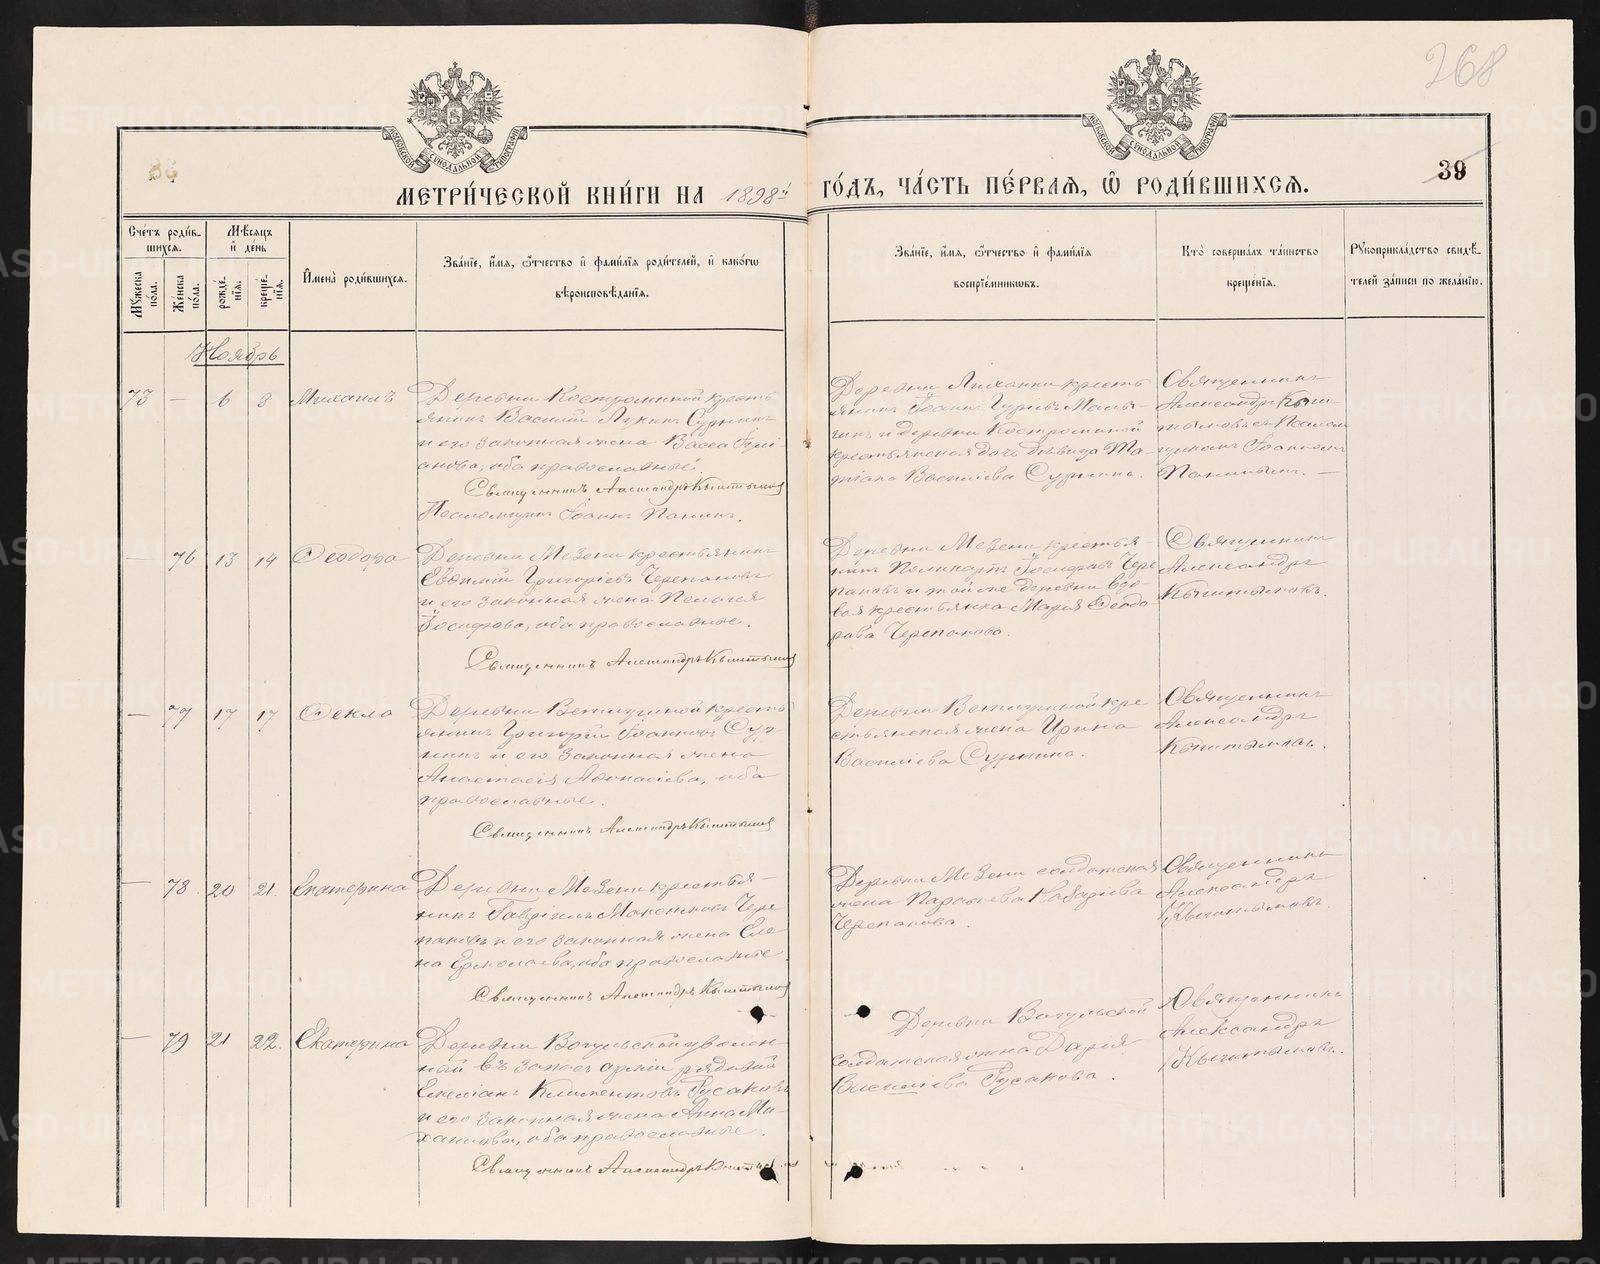 268
39
МОСКОВСКОЙ СѴНОДАЛЬНОЙ ТИПОГРАФІИ
МОСКОВСКОЙ СѴНОДАЛЬНОЙ ТИПОГРАФІИ
МЕТРИ́ЧЕСКОЙ КНИ́ГИ НА 1898й ГО́ДЪ, ЧА́СТЬ ПЕ́РВАѦ, Ѡ҆ РОДИ́ВШИХСѦ.
Сче́тъ роди́в-
шихсѧ.
Мꙋ́жеска по́ла.
Же́нска по́ла.
Мѣ́сѧцъ
и҆ де́нь
рожде́-
нїѧ.
креще́-
нїѧ.
И҆мена̀ роди́вшихсѧ.
Зва́нїе, и҆́мѧ, ѻ҆́тчество и҆ фами́лїѧ роди́телей, и҆ како́гѡ
вѣроисповѣ́данїѧ.
Зва́нїе, и҆́мѧ, ѻ҆́тчество и҆ фами́лїѧ
воспрїе́мникѡвъ.
Кто̀ соверша́лъ та́инство
креще́нїѧ.
Рꙋкоприкла́дство свидѣ́-
телей за́писи по жела́нїю.
Ноябрь
73 — 6 8 Михаилъ
Деревни Костроминой кресть
янинъ Василій Лукинъ Суринъ
и его законная жена Васса Іули-
анова, оба православные.
Священникъ Александръ Кыштымовъ
Псаломщикъ Іоаннъ Панинъ.
крестьянская дочь дѣвица Та-
тіана Василіева Сурнина.
Священникъ
Александръ Кыш-
тымовъ съ Псалом
щикомъ Іоанномъ
Паниным. —
— 76 13 14 Ѳеодора
Деревни Мезени крестьянинъ
Евѳимій Григоріевъ Черепановъ
и его законная жена Пелагея
Іосифова, оба православные.
Священникъ Александръ Кыштымовъ
Деревни Мезени крестья-
нинъ Поликарпъ Іосифовъ Чере
пановъ и той же деревни вдо-
вая крестьянка Марія Ѳеодо-
рова Черепанова.
Священникъ
Александръ
Кыштымовъ.
— 77 17 17 Ѳекла
Деревни Ветлугиной кресть
янинъ Григорій Іоанновъ Сур-
нинъ и его законная жена
Анастасія Аѳонасіева, оба
православные.
Священникъ Александръ Кыштымовъ
Деревни Ветлугиной кре
стьянская жена Ирина
Василіева Сурнина.
Священникъ
Александръ
Кыштымовъ.
— 78. 20 21. Екатерина
Деревни Мезени крестья-
нинъ Гавріилъ Максимовъ Чере
пановъ и его законная жена Еле
на Ермолаева, оба православные.
Священникъ Александръ Кыштымовъ
Деревни Мезени солдатская
жена Параскева Назаріева
Черепанова.
Священникъ
Александръ
Кыштымовъ.
— 79 21 22. Екатерина
Деревни Вогульской уволен-
ный въ запасъ арміи рядовой
Емеліанъ Климентовъ Русаковъ
и его законная жена Анна Ми-
хаилова, оба православные.
Священникъ Александръ Кыштымовъ
Деревни Вогульской
солдатская жена Дарія
Василіева Русакова.
Священникъ
Александръ
Кыштымовъ.